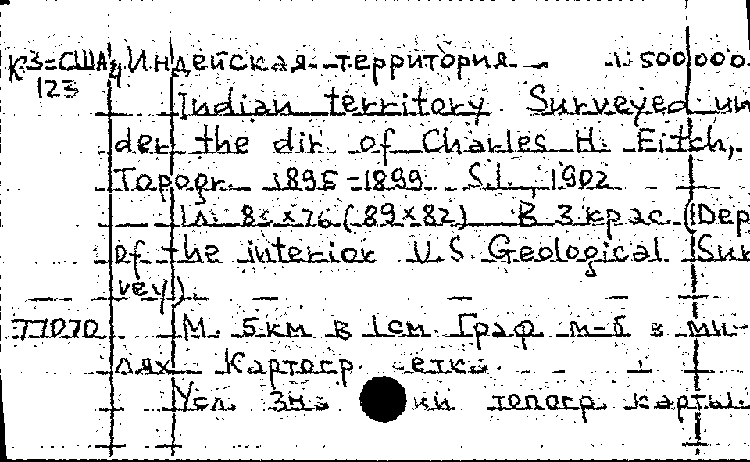 К3=США/4 Индейская территория 1:500000
123
Indian territory. Surveyed un
der the dir. of Charles H. Fitch,
Topogr. 1895-1899. S.l., 1902
1л. 83х76 (89х82) В 3 крас. (Dep
of the interior U.S. Geological Sur
vey).
77070 М. 5км в 1см. Граф. м-б в ми-
лях. Картогр. сетка.
Усл. зна ки топогр. карты.